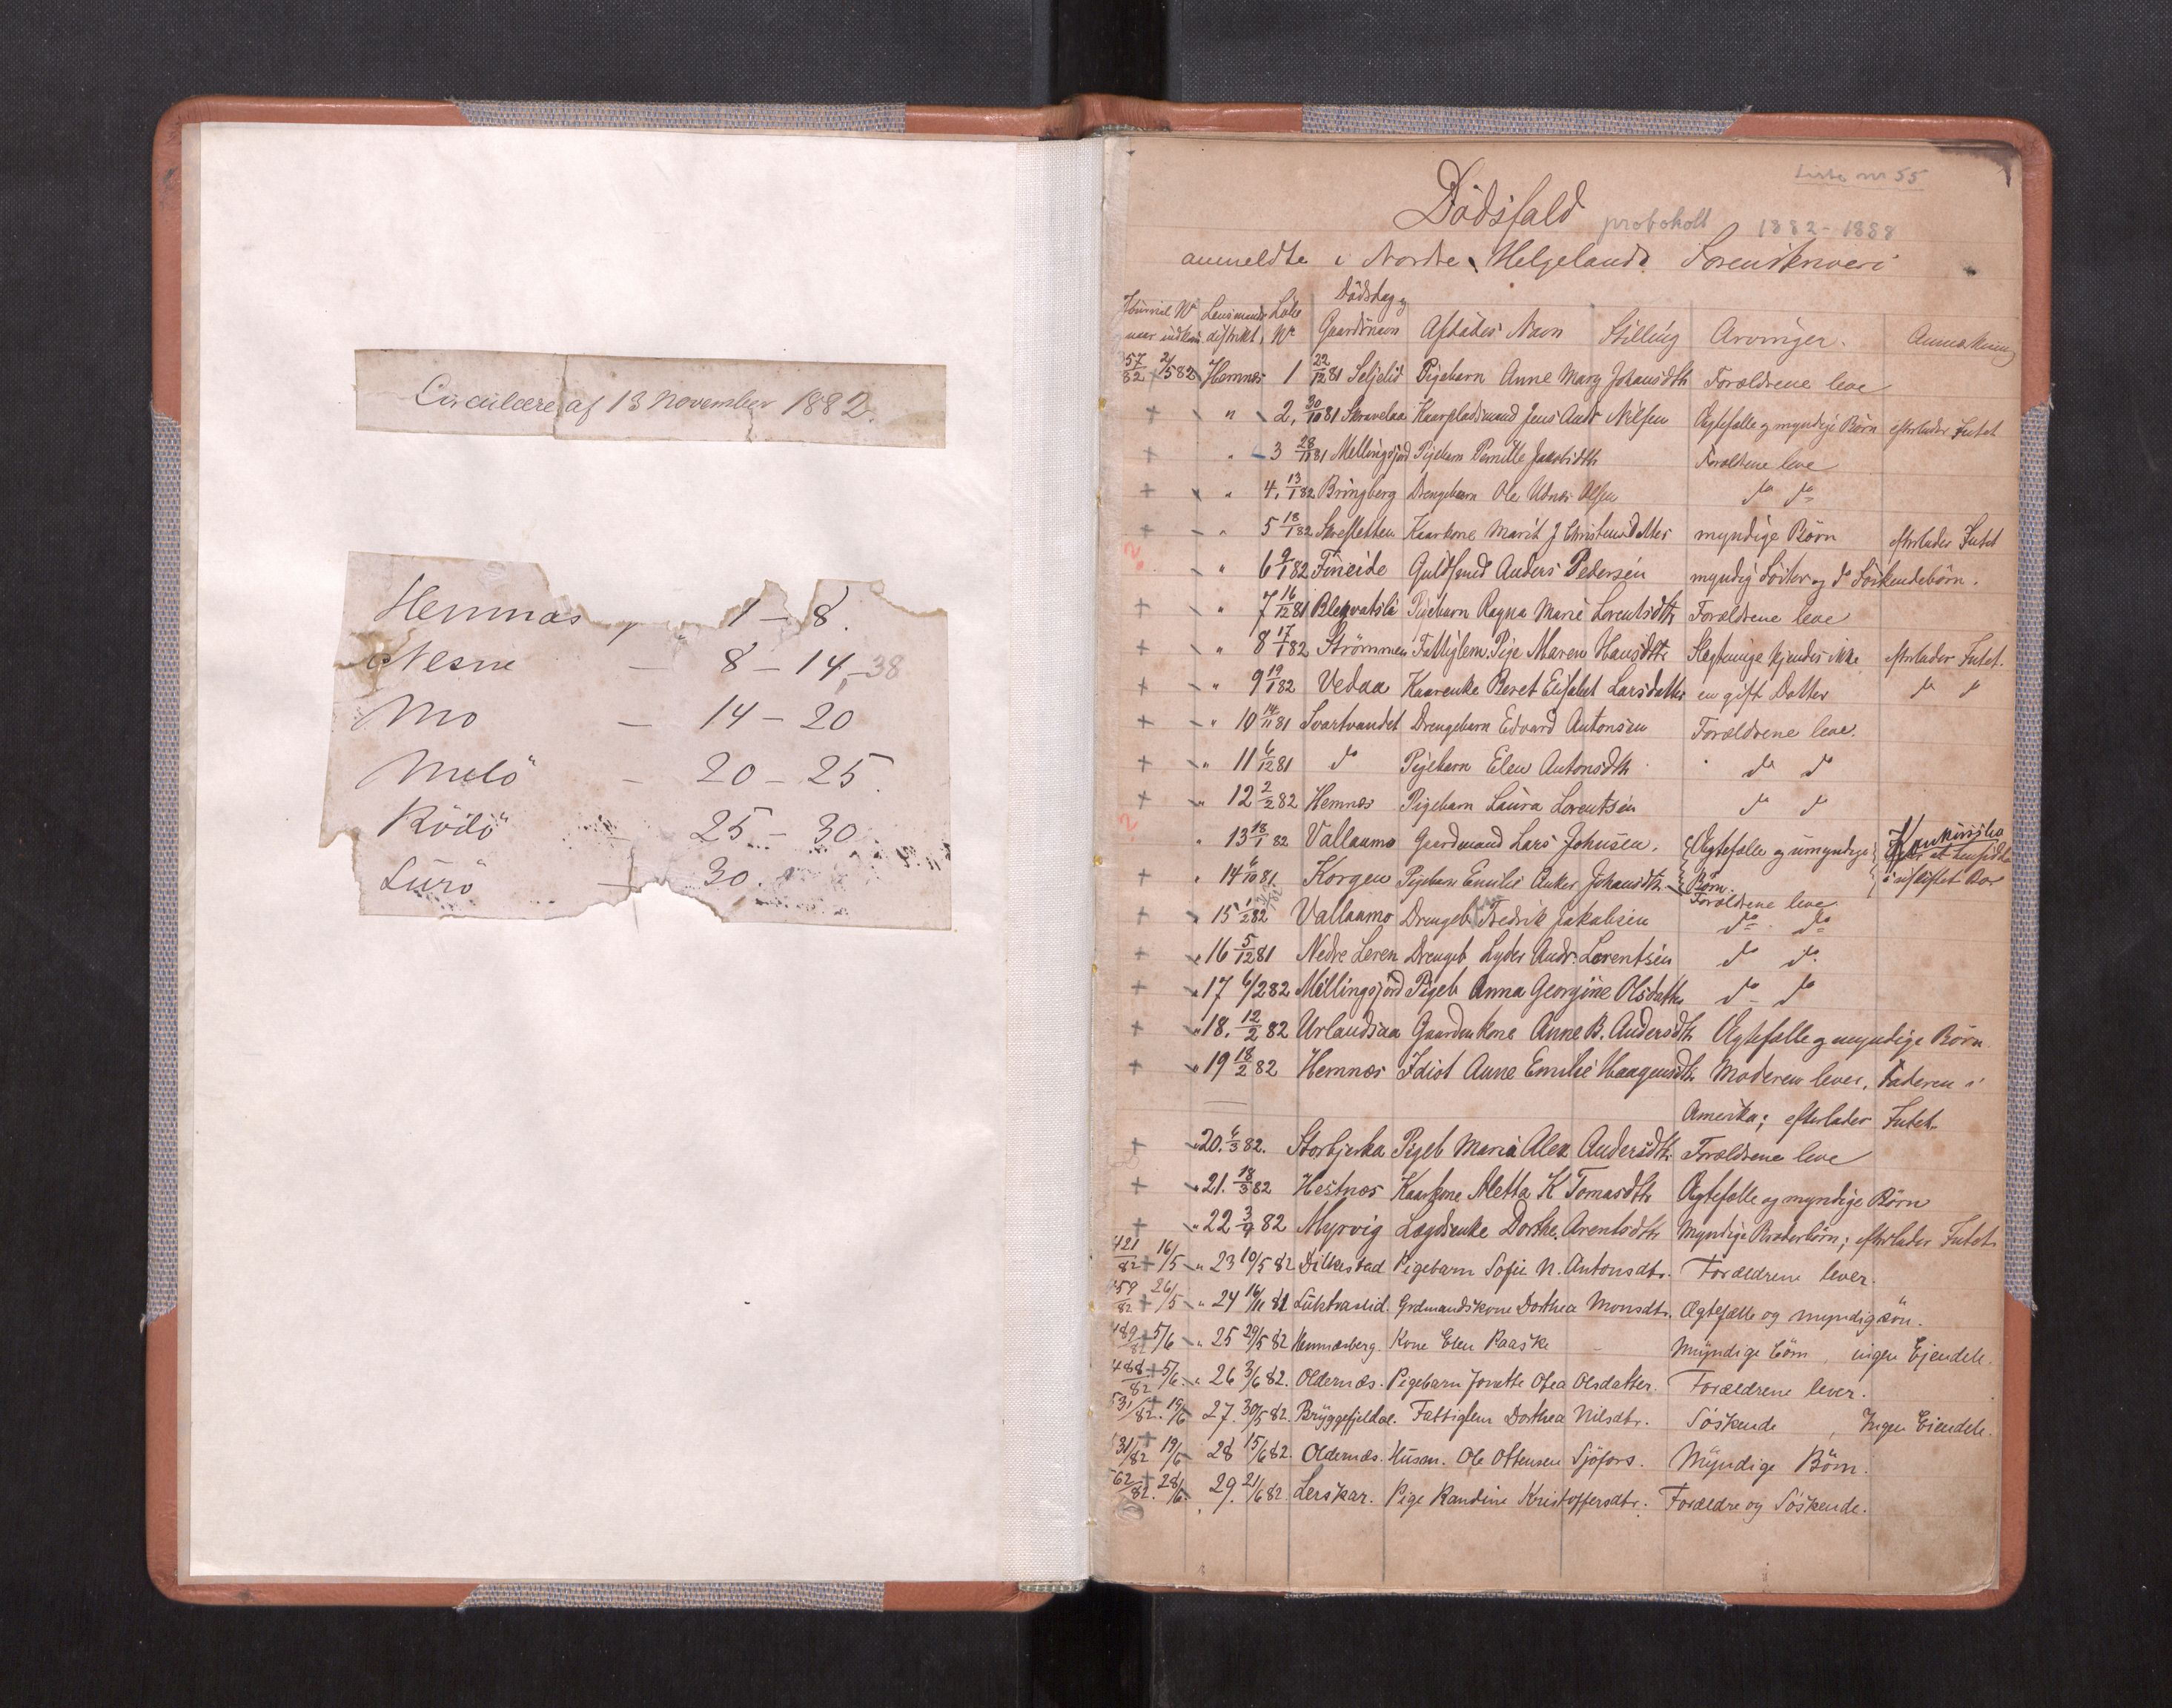 Circulære af 13 November 1882.
Hemnæs 1 – 8.
Nesne — 8 – 14 – 38
Mo — 14 – 20
Melö — 20 – 25.
Rödö — 25 – 30
Lurö — 30.
Liste nr 55
Dödsfald protokoll 1882 - 1888
anmeldte i Nordre Helgelands Sorenskriveri
Journal Nr naar indkom Lensmands distrikt Löbe Nr Dödsdag og Gaardsnavn Afdødes Navn Stilling Arvinger. Anmærkning
57/82 2/5 82 Hemnæs 1 22/12 81 Seljelid Pigebarn Anne Marg Johansdtr Forældrene leve
+ " 2, 30/10 81 Skravelaa Kaarpladsmand Jens Andr Nilsen Ægtefælle og myndige Börn efterlader Intet
+ " 3 28/11 81 Mellingsjord Pigebarn Pernille Jakobsdtr Forældrene leve
+ " 4, 13/1 82 Bringberg Drengebarn Ole Olsen do do
+ " 5 18/1 82 Kaarkone Marit J Christensdatter myndige Börn efterlader Intet
? " 6 9/1 82 Fineide Guldsmed Anders Pedersen myndig Söster og do Söskendebörn.
+ " 7 16/12 81 Pigebarn Ragna Marie Lorentsdtr Forældrene leve
+ " 8 17/1 82 Strömmen Fattiglem. Pige Maren Hansdtr Slegtninge kjendes ikke efterlader Intet.
+ " 9 19/1 82 Vedaa Kaarenke Beret Elisabet Larsdatter en gift Datter do do
+ " 10 14/11 81 Svartvandet Drengebarn Edvard Antonsen Forældrene leve.
+ " 11 6/12 81 do Pigebarn Elen Antonsdtr do do
+ " 12 2/2 82 Hemnæs Pigebarn Laura Lorentsen do do
? " 13 18/1 82 Vallaamo Gaardmand Lars Johnsen. Ægtefælle og umyndige Börn.
+ " 14 6/10 81 Korgen Pigebarn Emilie Anker Johansdtr Forældrene leve
+ " 15 1/2 82 Vallaamo Drengeb Fredrik Jakobsen do do
+ " 16 5/12 81 Nedre Leren Drengeb Lyder Andr. Lorentsen do do
+ " 17 6/2 82 Millingsjord Pigeb Anna Georgine Olsdatter do - do
+ " 18. 12/2 82 Urlandsaa Gaardmkone Anne B. Andersdtr Ægtefælle og myndige Börn
+ " 19 18/2 82 Hemnæs Idiot Anne Emilie Haagensdtr Moderen lever, Faderen i
Amerika; efterlader Intet.
+ " 20. 6/3 82. Storbjerka Pigeb Maria Alex Andersdtr. Forældrene leve
+ " 21. 18/3 82 Hestnæs Kaarkone Aletta K Tomasdtr Ægtefælle og myndige Börn
+ " 22 3/4 82 Myrvig Lægdsenke Dorthe Arentsdtr Myndige Broderbörn; efterlader Intet
421/82 + 16/5 " 23 10/5 82 Dilkestad Pigebarn Sofie N. Antonsdtr. Forældrene lever.
459/82 + 26/5 " 24 16/11 81 Grdmandskone Dorthea Monsdtr. Ægtefælle og myndig sön.
489/82 + 5/6 " 25 29/5 82 Hemnæsberg. Kone Elen Raaske - Myndige Börn, ingen Ejendele.
488/82 + 5/6. " 26 3/6 82. Oldernæs. Pigebarn Jonette Olea Olsdatter. Forældrene lever.
531/82. + 19/6 27. 30/5 82. Bryggefjeldal. Fattiglem Dorthea Nilsdtr. Söskende, Ingen Eiendele.
531/82 + 19/6 28 15/6 82. Oldernæs. Husm. Ole Ottensen Sjöfors. Myndige Börn.
562/82. + 28/6. 29. 21/6 82. Lerskar. Pige Randine Kristoffersdtr. Forældre og Söskende.